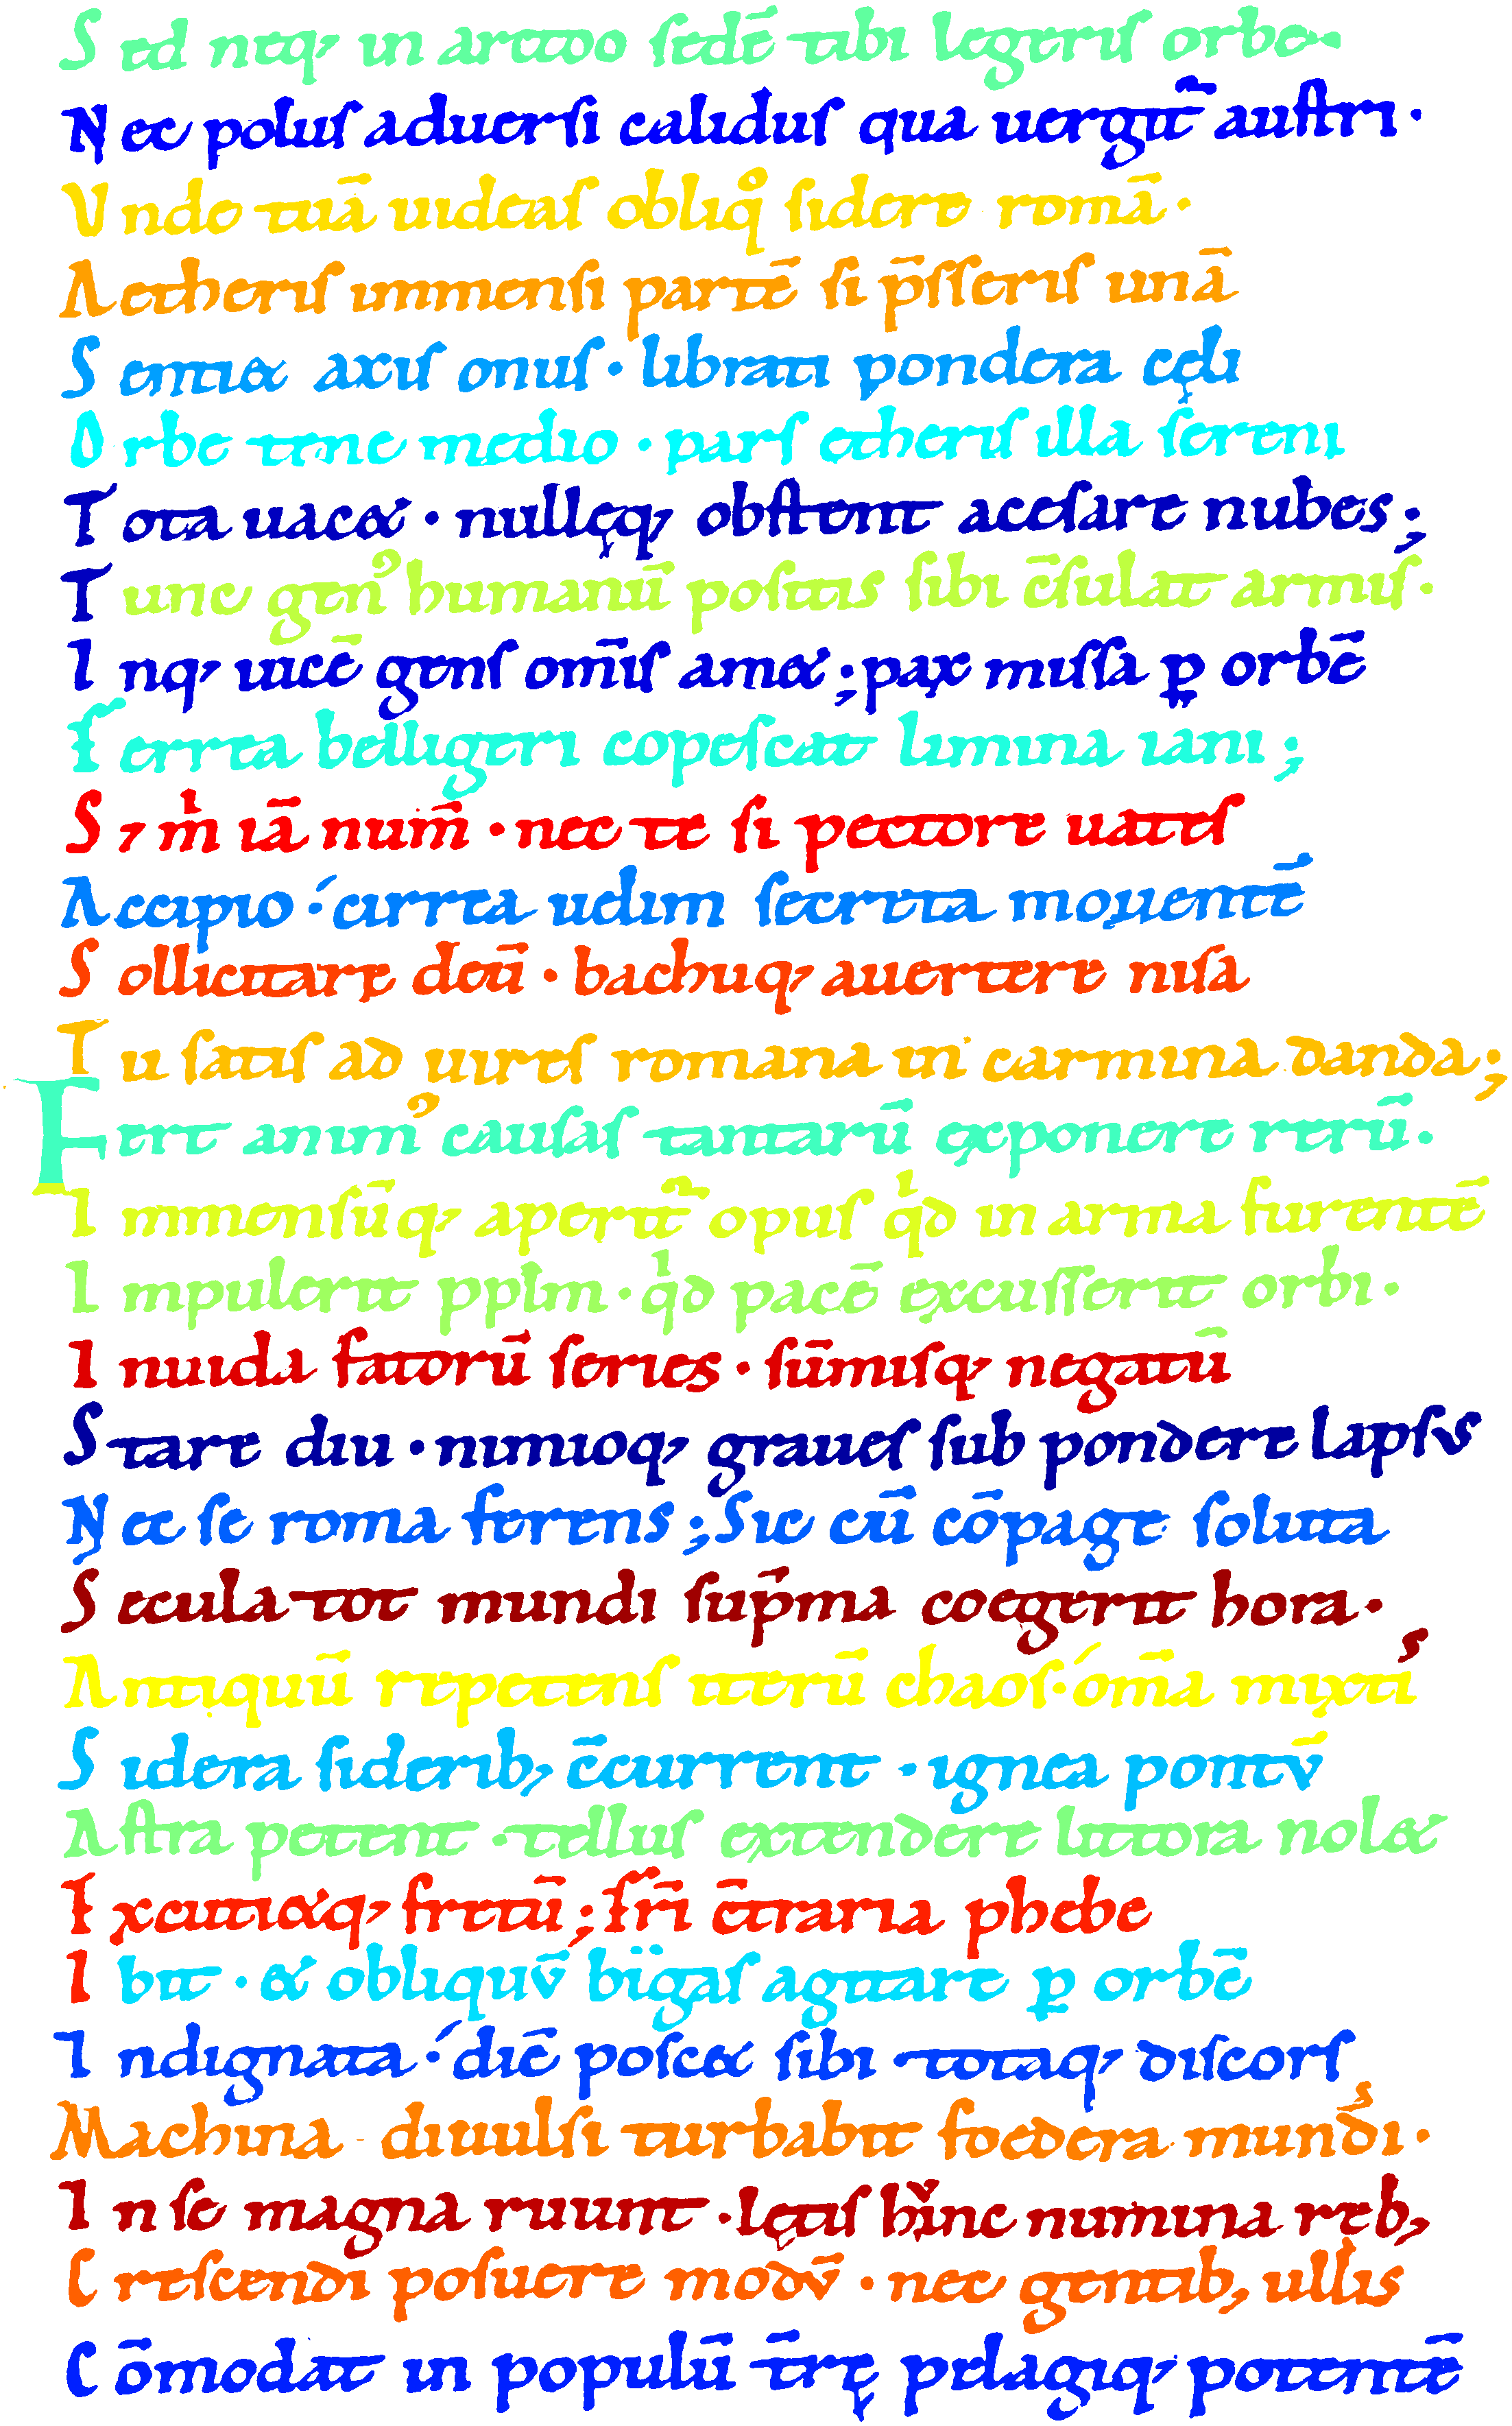 S ed neq, in arctoo ſedē tibi legeriſ orbe.
N ec poluſ aduerſi caliduſ qua uergit᷑ auſtri.
V nde tuā uideaſ obliqͦ ſidere romā.
A etheriſ immenſi partē ſi p̄ſſeriſ unā
S enti& axiſ onuſ · librati pondera cęli
O rbe tene medio · parſ etheriſ illa ſereni
T ota uac& · nullęq, obſtent aceſare nubes;
T unc gen᾽ humanū poſitis ſibi c̄ſulat armiſ.
I nq, uicē genſ om̄iſ am&; pax miſſa ꝑ orbē
F errea belligeri copeſcat limina iani;
S , m̍ iā num̄ · nec te ſi pectore uateſ
A ccipio · cirrea uelim ſecreta mouentē
S ollicitare deū · bachuq, auertere niſa
T u ſatiſ ad uireſ romana in carmina danda;
F ert anim᾽ cauſaſ tantarū exponere rerū.
I mmenſūq, aperit᷑ opuſ qͥd in arma furentē
I mpulerit pplm · qͥd pacē excuſſerit orbi.
I nuida fatorū ſeries · ſūmiſq, negatū
S tare diu · nimioq, graueſ ſub pondere lapſus
N ec ſe roma ferens; Sic cū cōpage ſoluta
S ecula tot mundi ſup̄ma coegerit hora.
A ntiquū repetenſ iterū chaoſ · om̄a mixtiſ
S idera ſiderib, c̄current · ignea pontū
A ſtra petent · telluſ extendere littora nol&
E xcuti&q, fretū; fr̄i c̄traria phebe
I bit · & obliquū bigaſ agitare ꝑ orbē
I ndignata · diē poſc& ſibi totaq, diſcorſ
M achina diuulſi turbabit foedera mundiſ.
I n ſe magna ruunt · lętiſ hūnc numina reb,
C reſcendi poſuere modū · nec gentib, ullis
C ōmodat in populū t̄rę pelagiq, potentē